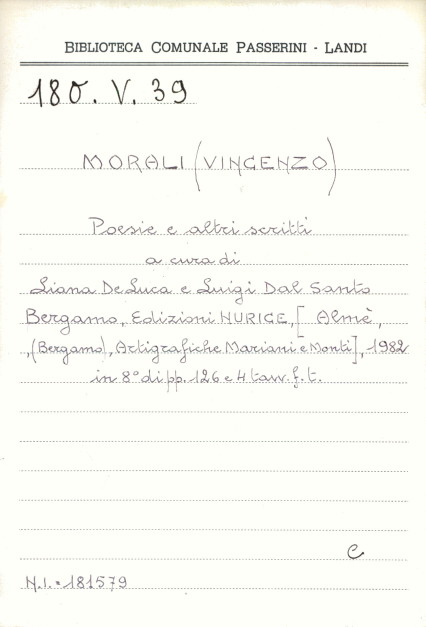 BIBLIOTECA COMUNALE PASSERINI - LANDI
180. V. 39
MORALI (VINCENZO)
Poesie e altri scritti
a cura di
Liana De Luca e Luigi Dal Santo
Bergamo, Edizioni NURICE, [Almè,
,(Bergamo), Artigrafiche Mariani e Monti], 1982
in 8° di pp. 126 e 4 tavv. f. t.
C
N.I. = 181579